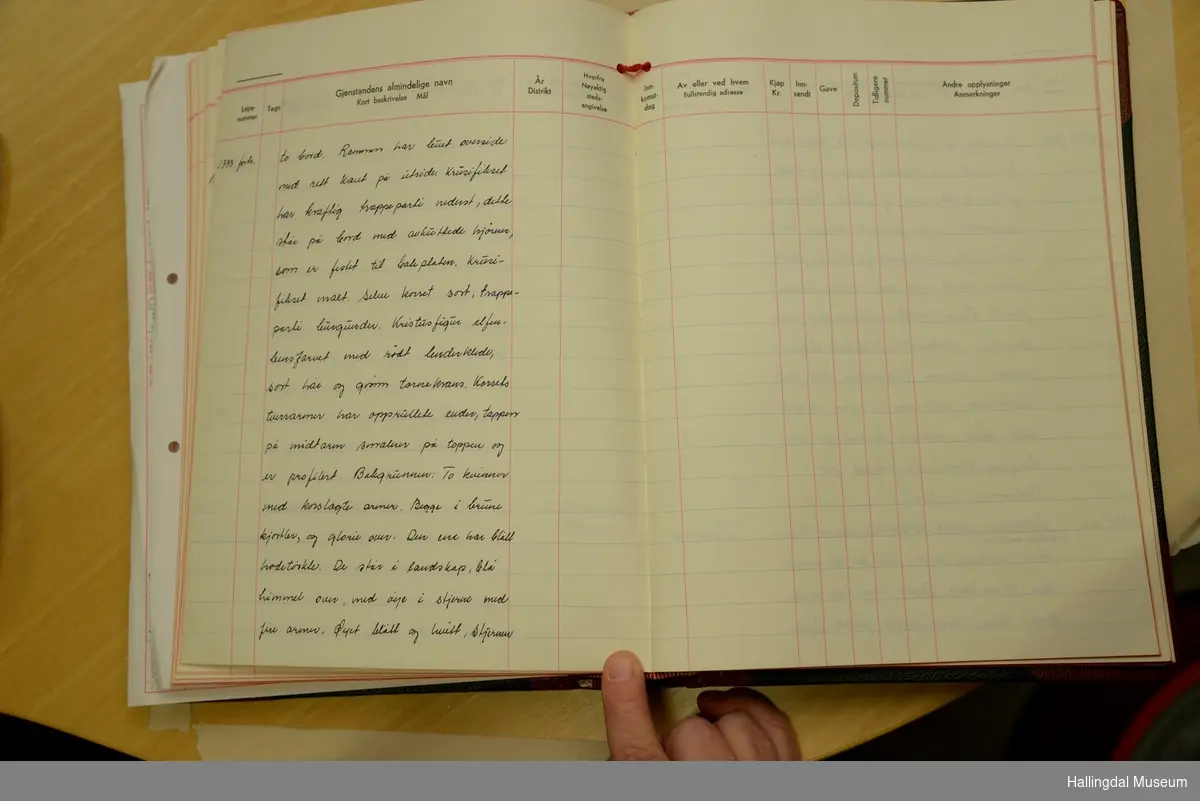 Løpe-
nummer
Tegn
Gjenstandens almindelige navn
Kort beskrivelse Mål
År
Distrikt
Hvorfra
Nøyaktig
steds-
angivelse
Inn-
komst-
dag
Av eller ved hvem
Fullstendig adresse
Kjøp
Kr.
Inn-
sendt
Gave
Depositum
Tidligere
nummer
Andre opplysninger
Anmerkninger
1733 forts.
to bord. Rammen har buet overside
med rett kant på utside. Krusifikset
har kraftig trappeparti nederst, dette
står på bord med avkuttede hjørner,
som er festet til bakplaten. Krusi-
fikset malt. Selve korset sort, trappe-
parti burgunder. Kristusfigur elfen-
bensfarvet med rødt lendeklede,
sort hår og grønn tornekrans. Korsets
tverrarmer har opprullete ender, toppen
på midtarm smalner på toppen og
er profilert. Bakgrunnen: To kvinner
med korslagte armer. Begge i brune
kjortler, og glorie over. Den ene har blått
hodetørkle. De står i landskap, blå
himmel over, med øye i stjerne med
fire armer. Øyet blått og hvitt, stjernen
Hallingdal Museum